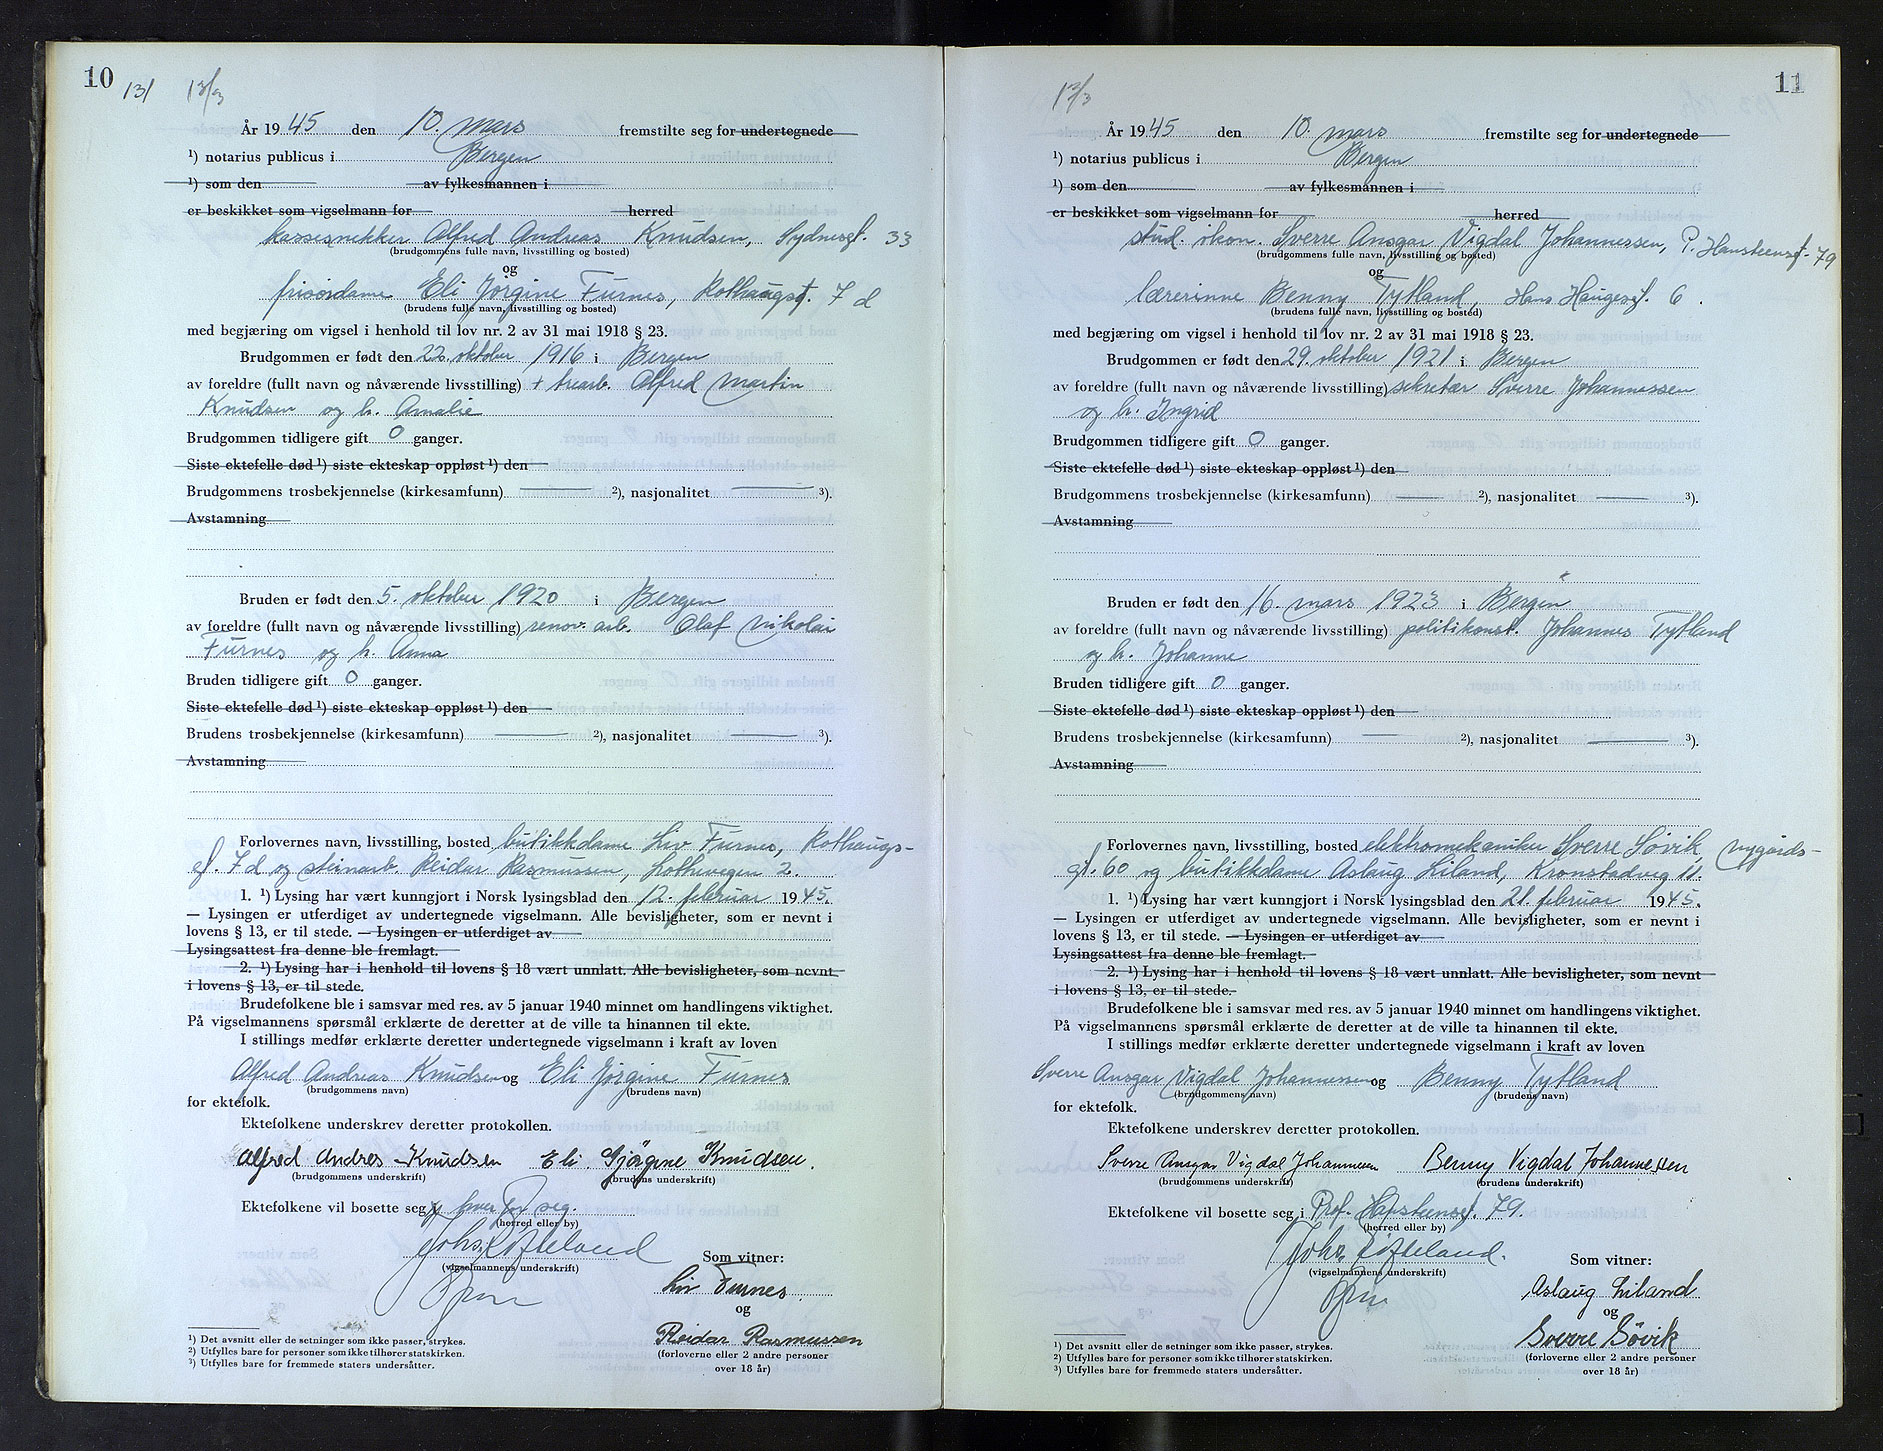 10
131
13/3
År 1945 den 10. mars fremstilte seg for undertegnede
¹) notarius publicus i Bergen
¹) som den av fylkesmannen i
er beskikket som vigselmann for herred
kassesnekker Alfred Andreas Knudsen, Sydnesgt. 33
(brudgommens fulle navn, livsstilling og bosted)
og
frisørdame Eli Jørgine Furnes, Rothaugsgt. 7 d
(brudens fulle navn, livsstilling og bosted)
med begjæring om vigsel i henhold til lov nr. 2 av 31 mai 1918 § 23.
Brudgommen er født den 22. oktober 1916 i Bergen
av foreldre (fullt navn og nåværende livsstilling) + trearb. Alfred Martin
Knudsen og h. Amalie
Brudgommen tidligere gift 0 ganger.
Siste ektefelle død ¹) siste ekteskap oppløst ¹) den
Brudgommens trosbekjennelse (kirkesamfunn) ²), nasjonalitet ³).
Avstamning
Bruden er født den 5. oktober 1920 i Bergen
av foreldre (fullt navn og nåværende livsstilling) renov. arb. Olaf Nikolai
Furnes og h. Anna
Bruden tidligere gift 0 ganger.
Siste ektefelle død ¹) siste ekteskap oppløst ¹) den
Brudens trosbekjennelse (kirkesamfunn) ²), nasjonalitet ³).
Avstamning
Forlovernes navn, livsstilling, bosted butikkdame Liv Furnes, Rothaugs-
gt. 7 d og steinarb. Reidar Rasmussen, Lothevegen 2.
1. ¹) Lysing har vært kunngjort i Norsk lysingsblad den 12. februar 1945.
— Lysingen er utferdiget av undertegnede vigselmann. Alle bevisligheter, som er nevnt i
lovens § 13, er til stede. — Lysingen er utferdiget av
Lysingsattest fra denne ble fremlagt.
2. ¹) Lysing har i henhold til lovens § 18 vært unnlatt. Alle bevisligheter, som nevnt
i lovens § 13, er til stede.
Brudefolkene ble i samsvar med res. av 5 januar 1940 minnet om handlingens viktighet.
På vigselmannens spørsmål erklærte de deretter at de ville ta hinannen til ekte.
I stillings medfør erklærte deretter undertegnede vigselmann i kraft av loven
Alfred Andreas Knudsen og Eli Jørgine Furnes
(brudgommens navn) (brudens navn)
for ektefolk.
Ektefolkene underskrev deretter protokollen.
Alfred Andres Knudsen Eli Gjørgine Knudsen.
(brudgommens underskrift) (brudens underskrift)
Ektefolkene vil bosette seg hver for seg.
(herred eller by)
Johs. Lofteland
(vigselmannens underskrift)
Som vitner:
Liv Furnes
og
Reidar Rasmussen
(forloverne eller 2 andre personer
over 18 år)
¹) Det avsnitt eller de setninger som ikke passer, strykes.
²) Utfylles bare for personer som ikke tilhører statskirken.
³) Utfylles bare for fremmede staters undersåtter.
11
12/3
År 1945 den 10. mars fremstilte seg for undertegnede
¹) notarius publicus i Bergen
¹) som den av fylkesmannen i
er beskikket som vigselmann for herred
stud. økon. Sverre Ansgar Vigdal Johannessen, P. Hansteensgt. 79
(brudgommens fulle navn, livsstilling og bosted)
og
lærerinne Benny Tytland, Hans Haugesgt. 6.
(brudens fulle navn, livsstilling og bosted)
med begjæring om vigsel i henhold til lov nr. 2 av 31 mai 1918 § 23.
Brudgommen er født den 29. oktober 1921 i Bergen
av foreldre (fullt navn og nåværende livsstilling) sekretær Sverre Johannessen
og h. Ingrid
Brudgommen tidligere gift 0 ganger.
Siste ektefelle død ¹) siste ekteskap oppløst ¹) den
Brudgommens trosbekjennelse (kirkesamfunn) ²), nasjonalitet ³).
Avstamning
Bruden er født den 16. mars 1923 i Bergen
av foreldre (fullt navn og nåværende livsstilling) politikonst. Johannes Tytland
og h. Johanne
Bruden tidligere gift 0 ganger.
Siste ektefelle død ¹) siste ekteskap oppløst ¹) den
Brudens trosbekjennelse (kirkesamfunn) ²), nasjonalitet ³).
Avstamning
Forlovernes navn, livsstilling, bosted elektromekaniker Sverre Søvik, Nygårds-
gt. 60 og butikkdame Aslaug Liland, Kronstadveg 11.
1. ¹) Lysing har vært kunngjort i Norsk lysingsblad den 21. februar 1945.
— Lysingen er utferdiget av undertegnede vigselmann. Alle bevisligheter, som er nevnt i
lovens § 13, er til stede. — Lysingen er utferdiget av
Lysingsattest fra denne ble fremlagt.
2. ¹) Lysing har i henhold til lovens § 18 vært unnlatt. Alle bevisligheter, som nevnt
i lovens § 13, er til stede.
Brudefolkene ble i samsvar med res. av 5 januar 1940 minnet om handlingens viktighet.
På vigselmannens spørsmål erklærte de deretter at de ville ta hinannen til ekte.
I stillings medfør erklærte deretter undertegnede vigselmann i kraft av loven
Sverre Ansgar Vigdal Johannessen og Benny Tytland
(brudgommens navn) (brudens navn)
for ektefolk.
Ektefolkene underskrev deretter protokollen.
Sverre Ansgar Vigdal Johannessen Benny Vigdal Johannessen
(brudgommens underskrift) (brudens underskrift)
Ektefolkene vil bosette seg i Prof. Hansteensgt. 79.
(herred eller by)
Johs. Lofteland.
(vigselmannens underskrift)
Som vitner:
Aslaug Liland
og
Sverre Søvik
(forloverne eller 2 andre personer
over 18 år)
¹) Det avsnitt eller de setninger som ikke passer, strykes.
²) Utfylles bare for personer som ikke tilhører statskirken.
³) Utfylles bare for fremmede staters undersåtter.